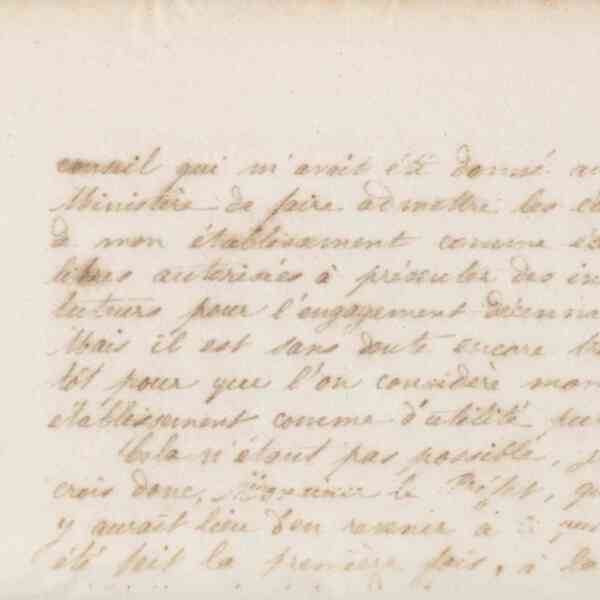 conseil qui m'avait été donné au
Ministère de faire admettre les
à mon établissement comme
libres autorisés à présenter des ins
tituteurs pour l'engagement décenna
Mais il est sans doute encore
tôt pour que l'on considère mon
établissement comme d'utilité pu
Cela n'étant pas possible, j
crois donc, Monsieur le Préfet, qu
y aurait lieu d'en revenir à
été fait la première fois, à la